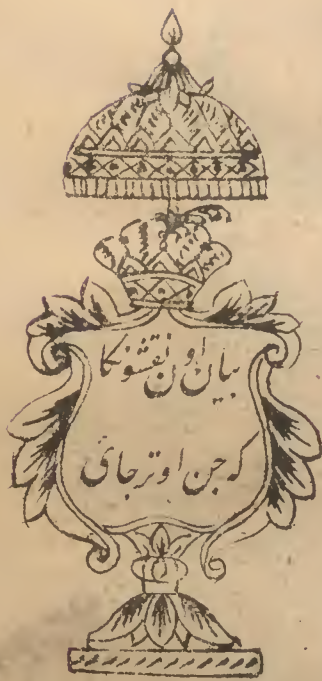 بیان اون نقشونکا
که جن اوتر جائ